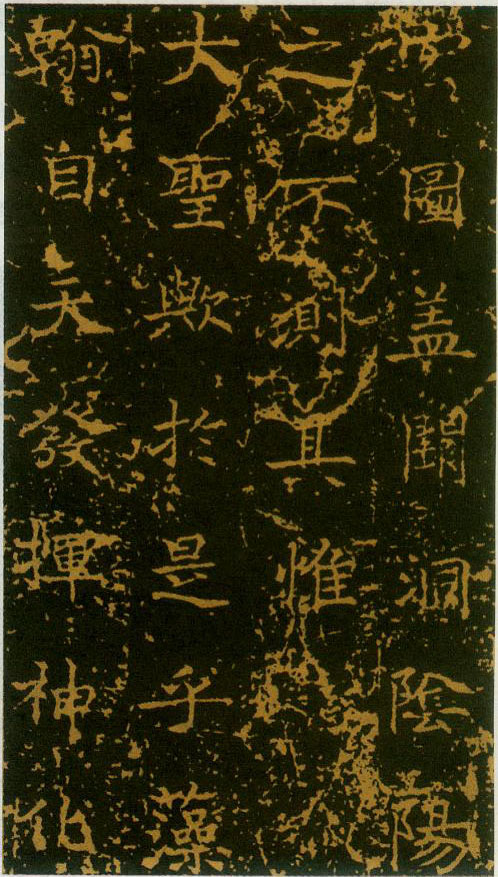 圖盖洞陰陽
之不測其惟
大聖歟於是乎藻
翰自天發揮神化